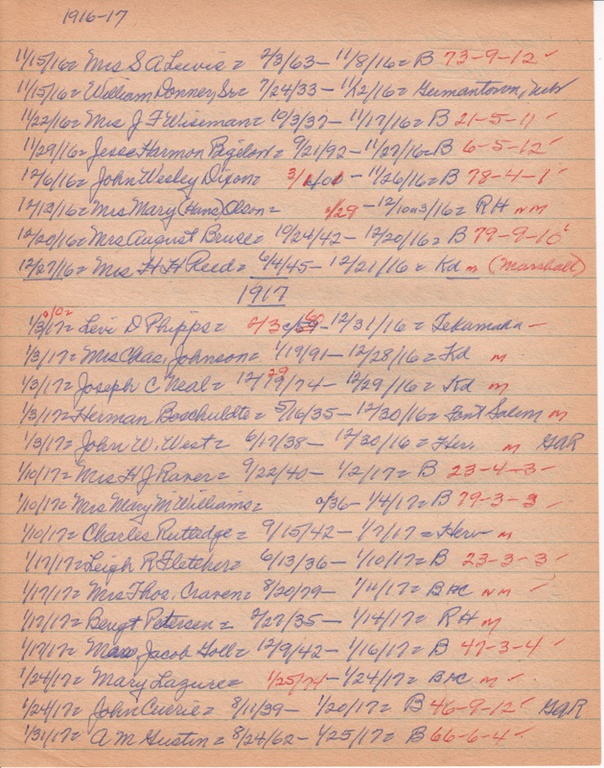 1916-17
11/15/16= Mrs S A Lewis= 2/3/63 - 11/8/16= B 73-9-12
11/15/16= William Donner, Sr= 7/24/33 - 11/12/16= Germantown, Nebr
11/22/16= Mrs J F Wiseman= 10/3/37 - 11/17/16= B 21-5-11
11/29/16= Jesse Harmon Bigelow= 9/21/92 - 11/27/16= B 6-5-12
12/6/16= John Wesley Dixon= - 11/26/16= B 78-4-1
12/13/16= Mrs Mary (Hans) Olson= 0/29 - 12/10 or 3/16= RH NM
12/20/16= Mrs August Bruse= 10/24/42 - 12/20/16= B 79-9-10
12/27/16= Mrs H H Reed= 6/4/45 - 12/21/16= Kd m (Marshall)
1917
1/3/17= Levi D Phipps= - 12/31/16= Tekamah
1/3/17= Mrs Chas. Johnson= 1/19/91 - 12/28/16= Kd m
1/3/17= Joseph C Neal= 12/29/74 - 12/29/16= Kd m
1/3/17= Herman Boschuldte= 5/16/35 - 12/30/16= Font Salem m
1/3/17= John W. West= 6/17/38 - 12/30/16= Her. m GAR
1/10/17= Mrs H J Raver= 9/22/40 - 1/2/17= B 23-4-3
1/10/17= Mrs Mary M Williams= 0/36 - 1/4/17= B 79-3-3
1/10/17= Charles Rutledge= 9/15/42 - 1/7/17= Her m
1/17/17= Leigh R Fletcher= 6/13/36 - 1/10/17= B 23-3-3
1/17/17= Mrs Thos. Craven= 8/20/79 - 1/11/17= B HC NM
1/17/17= Bengt Petersen= 2/27/35 - 1/14/17= RH m
1/17/17= Mrs Jacob Goll= 12/9/42 - 1/16/17= B 47-3-4
1/24/17= Mary Lagure= 1/25/74 - 1/24/17= B HC m
1/24/17= John Currie= 8/11/39 - 1/20/17= B 46-9-12 GAR
1/31/17= A M Gustin= 8/24/62 - 1/25/17= B 66-6-4